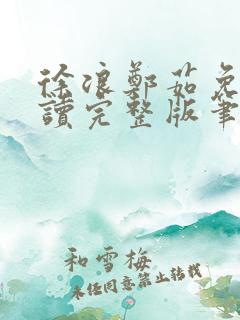 徐浪鄭茹免
讀完整版筆
和雪梅
未任同意禁止转载